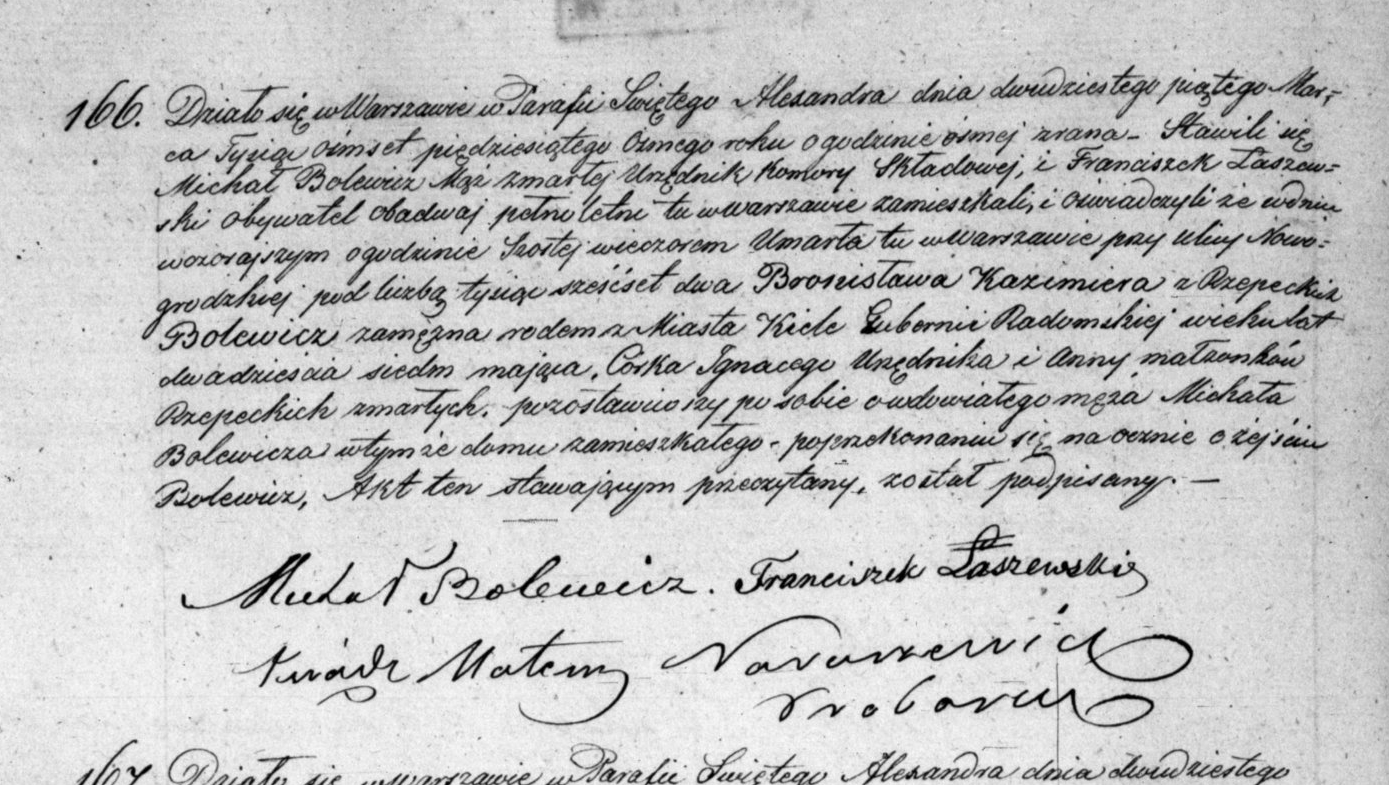 166. Działo się w Warszawie w Parafii Świętego Alexandra dnia dwudziestego piątego Mar=
ca Tysiąc ośmset piędziesiątego ósmego roku o godzinie ósmej zrana – Stawili się
Michał Bolewicz Mąż zmarłej Urzędnik Komory Składowej, i Franciszek Łaszew=
ski obywatel obadwaj pełnoletni tu w Warszawie zamieszkali, i oświadczyli że w dniu
wczorajszym o godzinie szóstej wieczorem Umarła tu w Warszawie przy ulicy Nowo=
grodzkiej pod liczbą tysiąc sześćset dwa Bronisława Kazimiera z Rzepeckich
Bolewicz zamężna rodem z Miasta Kielc Gubernii Radomskiej wieku lat
dwadzieścia siedm mająca, Córka Ignacego Urzędnika i Anny małżonków
Rzepeckich zmarłych. pozostawiwszy po sobie owdowiałego męża Michała
Bolewicza w tymże domu zamieszkałego – po przekonaniu się na ocznie o zejściu
Bolewicz, Akt ten stawającym przeczytany, został podpisany. –
Michał Bolewicz. Franciszek Łaszewski
Ksiądz
167. Działo się w Warszawie w Parafii Świętego Alexandra dnia dwudziestego